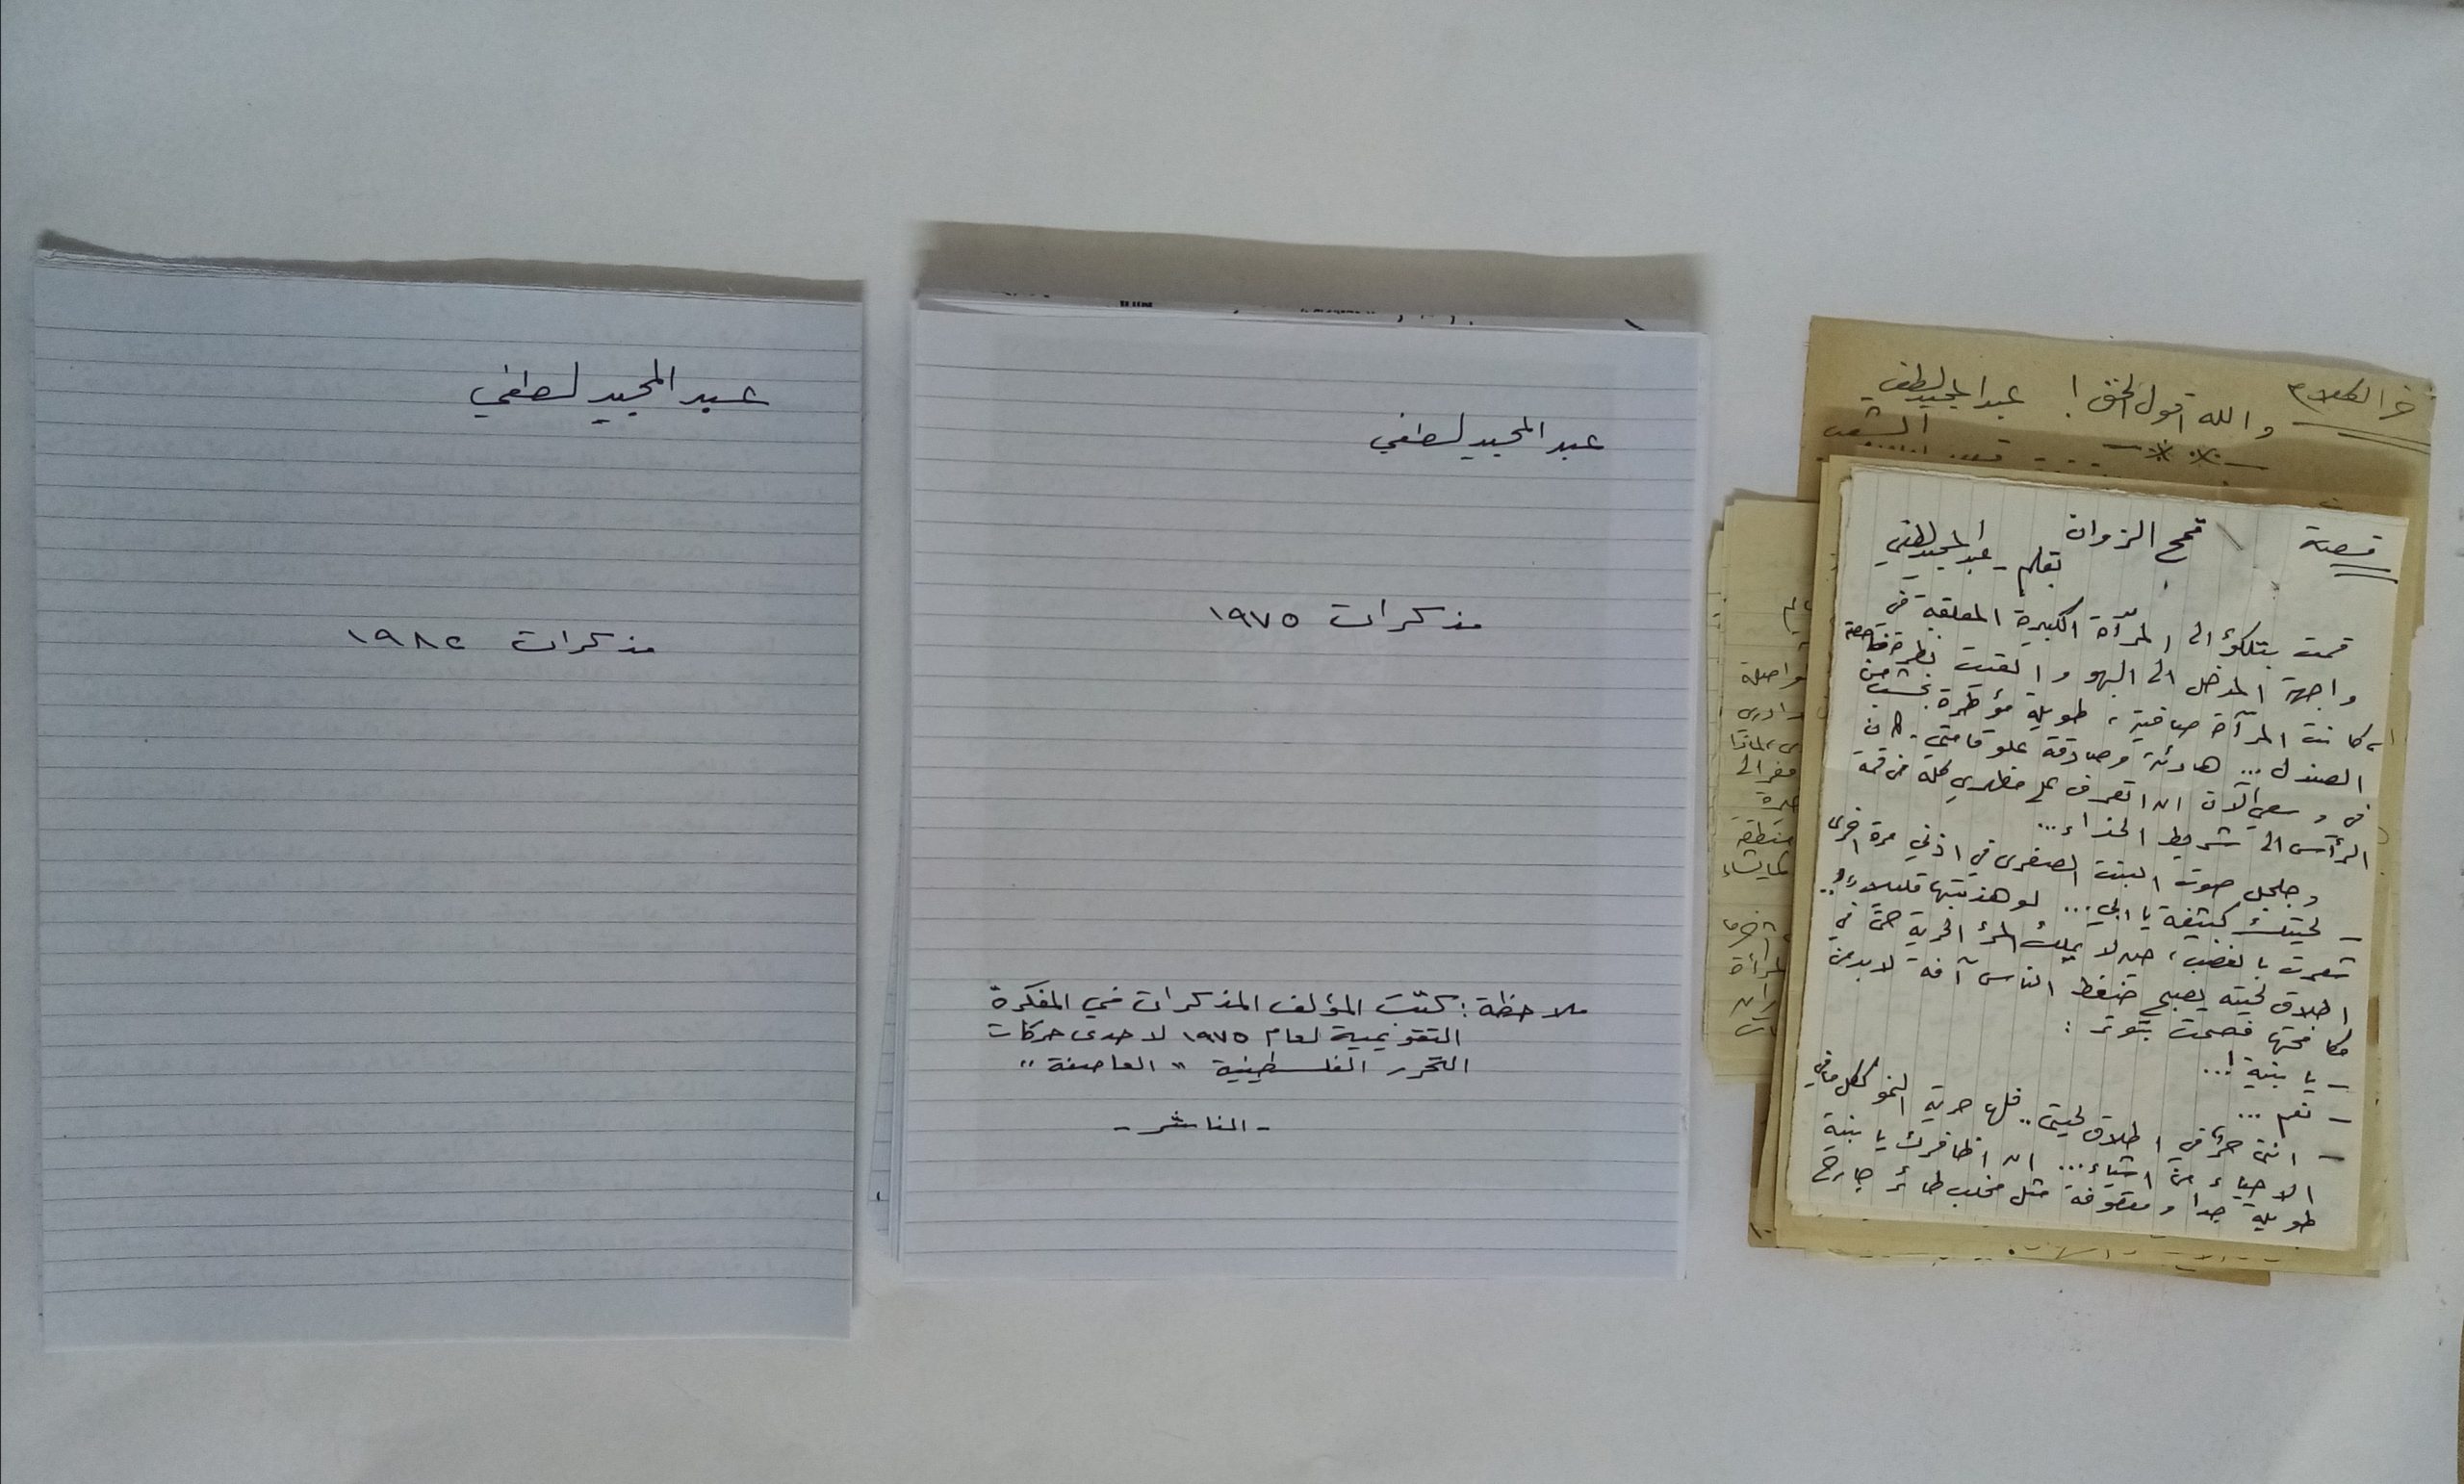 عبد المجيد لطفي
مذكرات ١٩٨٢
عبد المجيد لطفي
مذكرات ١٩٧٥
ملاحظة : كتب المؤلف المذكرات في المفكرة
التقويمية لعام ١٩٧٥ لاحدى حركات
التحرر الفلسطينية " العاصفة "
- الناشر -
الكلام والله اقول الحق ! عبد المجيد لطفي
قصة قمح الزوان
بقلم - عبد المجيد لطفي
قمت بتلكؤ الى المرآة الكبيرة المعلقة في
واجهة المدخل الى البهو والقيت نظرة فاحصة
كانت المرآة صافية ، طويلة مؤطرة بخشب من
الصندل ... هادئة وصادقة علو قامتي . كان
في وسعي الآن ان اتعرف على مظهري كله من قمة
الرأس الى شريط الحذاء ...
وجلجل صوت البنت الصغرى في اذني مرة اخرى
- لحيتك كثيفة يا ابي ... لو هذبتها قليلا ..
شعرت بالغضب ، حين لا يملك المرء الحرية حتى في
اطلاق لحيته يصبح ضغط الناس آفة لا بد من
مكافحتها فصحت بتوتر :
- يا بنية ! ...
- نعم ...
- انني حر في اطلاق لحيتي .. فلها حرية النمو ككل ما في
الاحياء من اشياء ... ان اظافرك يا بنية
طويلة جدا ومعقوفة مثل مخلب طائر جارح
واصلة
منطقة
كما يشاء